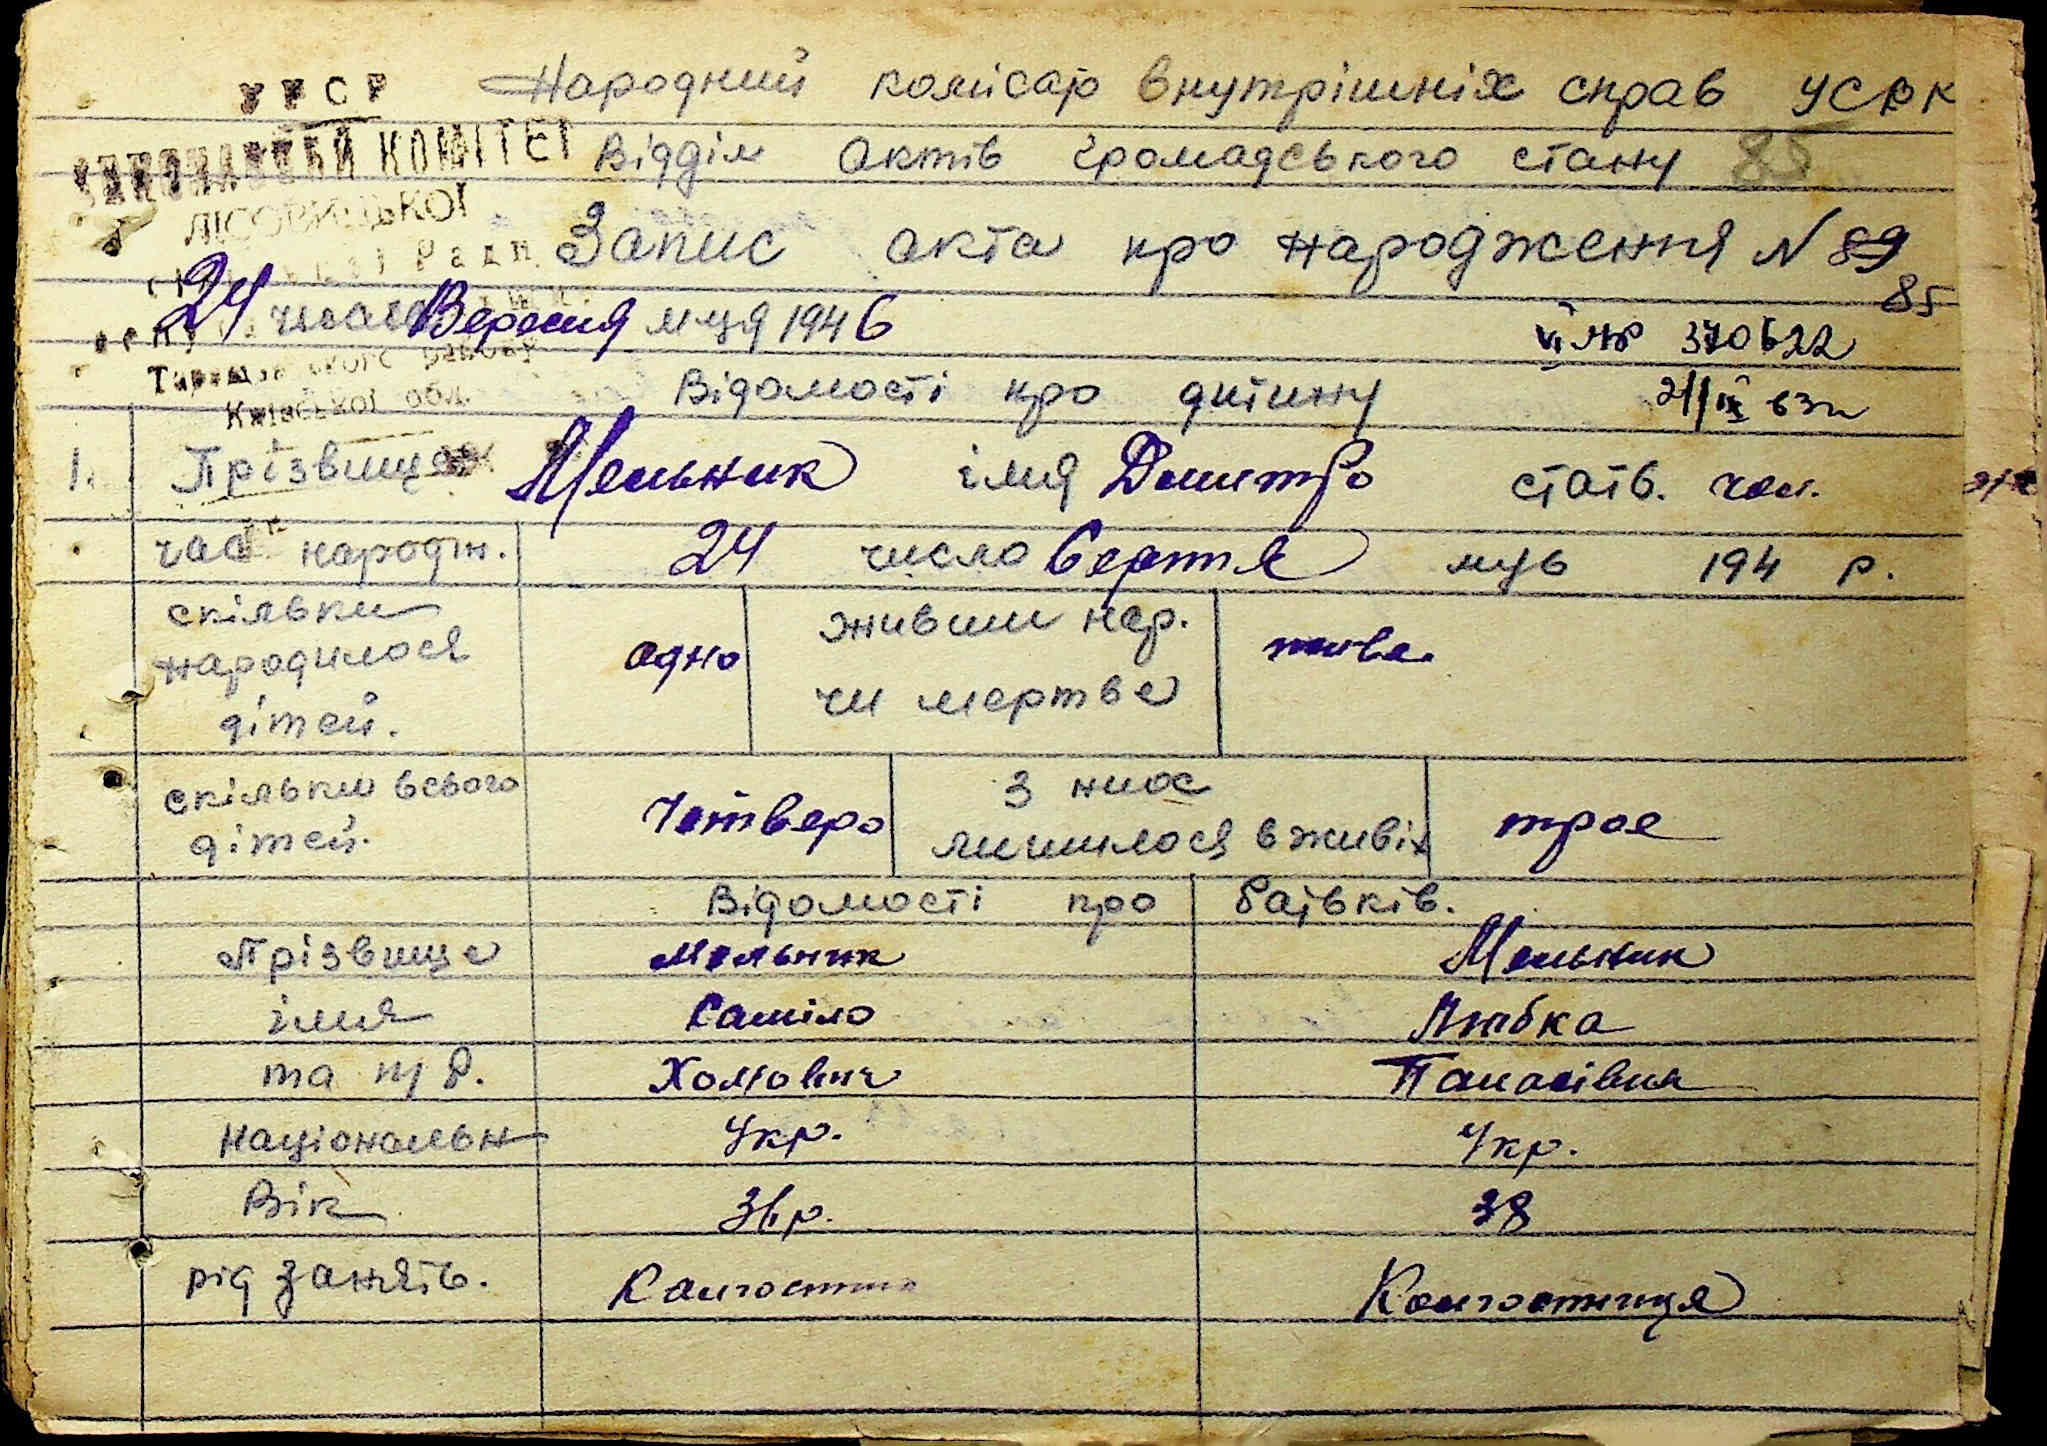 УРСР
ВИКОНАВЧИЙ КОМІТЕТ
ЛІСОВИЦЬКОЇ
Ради
Київської обл.
Народний комісар внутрішніх справ УСРР
Відділ Актів громадського стану 85
Запис акта про народження N 89
85
24 числа Вересня м-ця 1946
370622
Відомості про дитину
1. Прізвище Мельник імя Дмитро стать. чол.
час народж. 24 число Серпня м-ць 194 р.
скільки народилося дітей. одно живими нар. чи мертве живе.
скільки всього дітей. Четверо з них лишилося в живіх троє
Відомості про батьків.
Прізвище Мельник Мельник
імя Саміло Любка
та п/б. Хомович Панасівна
Національн Укр. Укр.
Вік 36 р. 38
рід занять. Колгоспник Колгоспниця